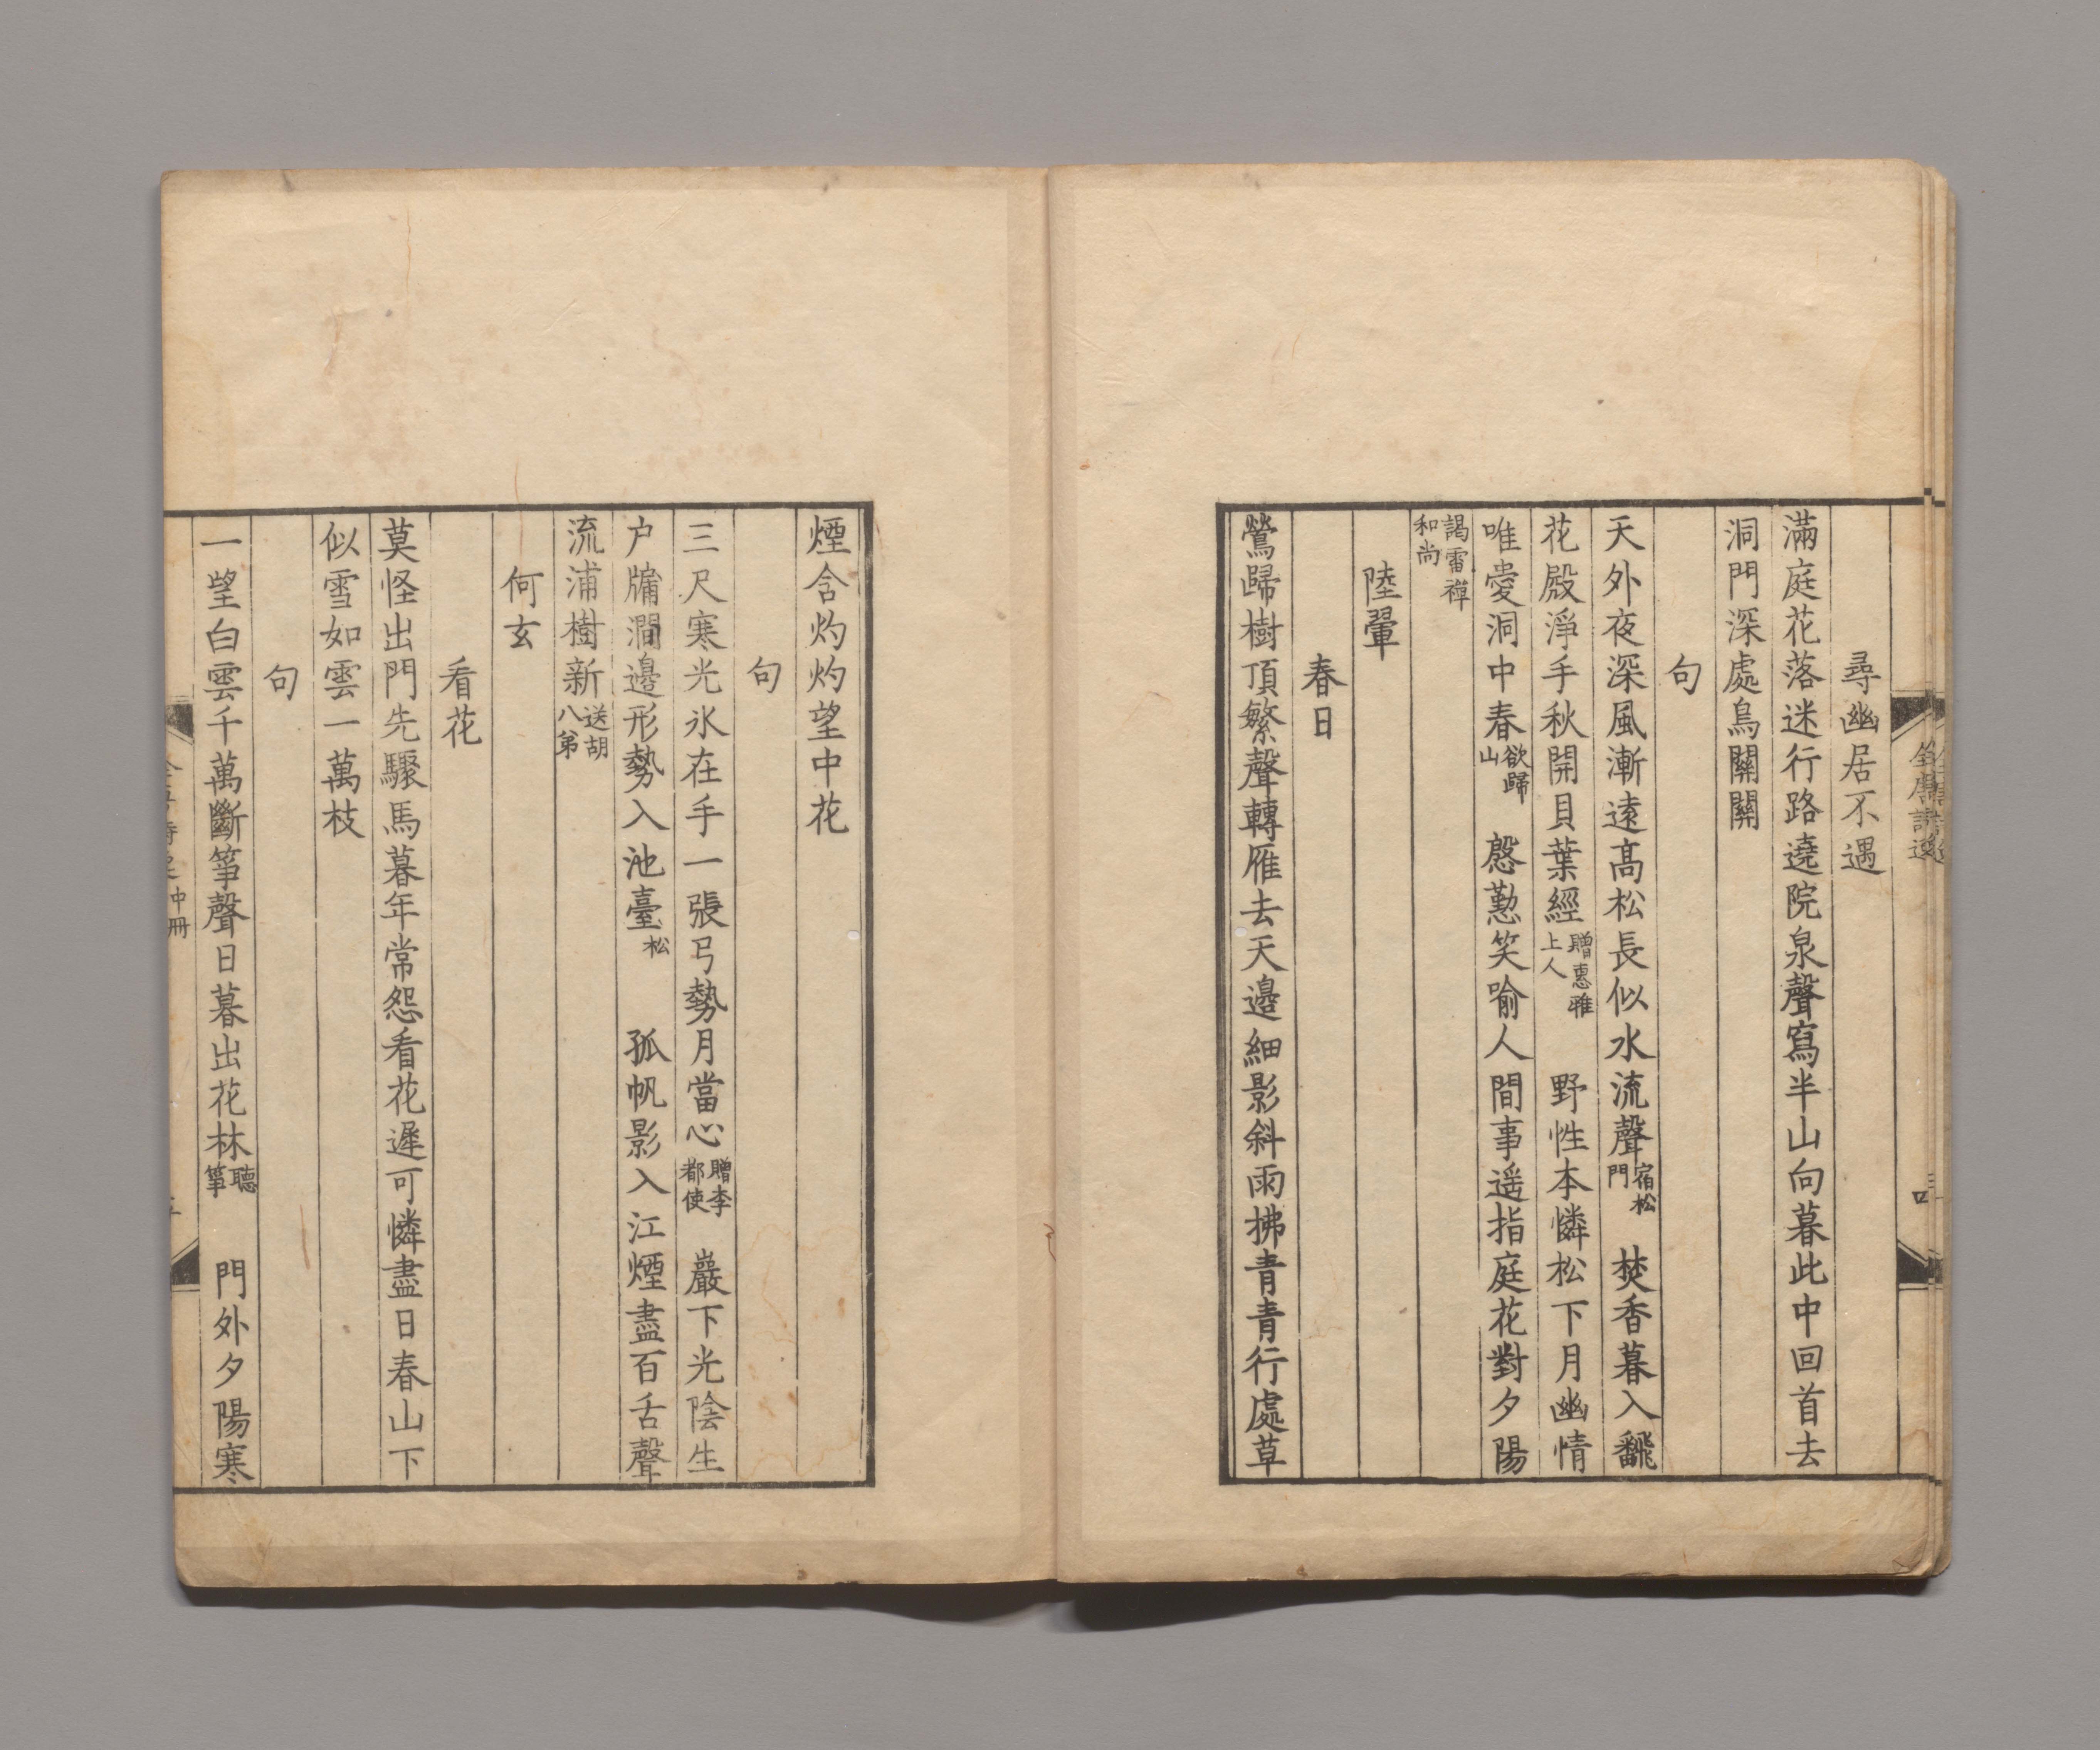 尋幽居不遇
滿庭花落迷行路遶院泉聲寫半山向暮此中回首去
洞門深處鳥關關
句
天外夜深風漸遠高松長似水流聲宿松門 焚香暮入飜
花殿淨手秋開貝葉經贈惠雅上人 野性本憐松下月幽情
唯愛洞中春欲歸山 慇懃笑喻人間事遥指庭花對夕陽
謁雷禪和尚
陸翬
春日
鶯歸樹頂繁聲轉雁去天邊細影斜雨拂青青行處草
煙含灼灼望中花
句
三尺寒光氷在手一張弓勢月當心贈李都使 巖下光陰生
户牖澗邊形勢入池臺松 孤帆影入江煙盡百舌聲
流浦樹新送胡八弟
何玄
看花
莫怪出門先驟馬暮年常怨看花遲可憐盡日春山下
似雪如雲一萬枝
句
一望白雲千萬斷筝聲日暮出花林聽筝 門外夕陽寒
中冊